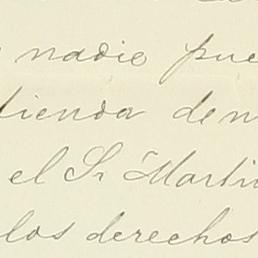 nadie pue
tienda de m
el Sr Marti
los derechos